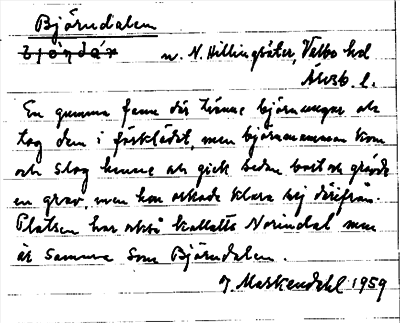 Björndalen
Björndär n. N. Hillingsäter, Valbo hd
Älvsb l.
En gumma fann där tvänne björnungar och
tog dem i förklädet, men björnmamman kom
och slog henne och gick sedan bort och grävde
en grav, men hon orkade klara sej därifrån.
Platsen har också kallats Norindal men
är samma som Björndalen.
J. Markendahl 1959